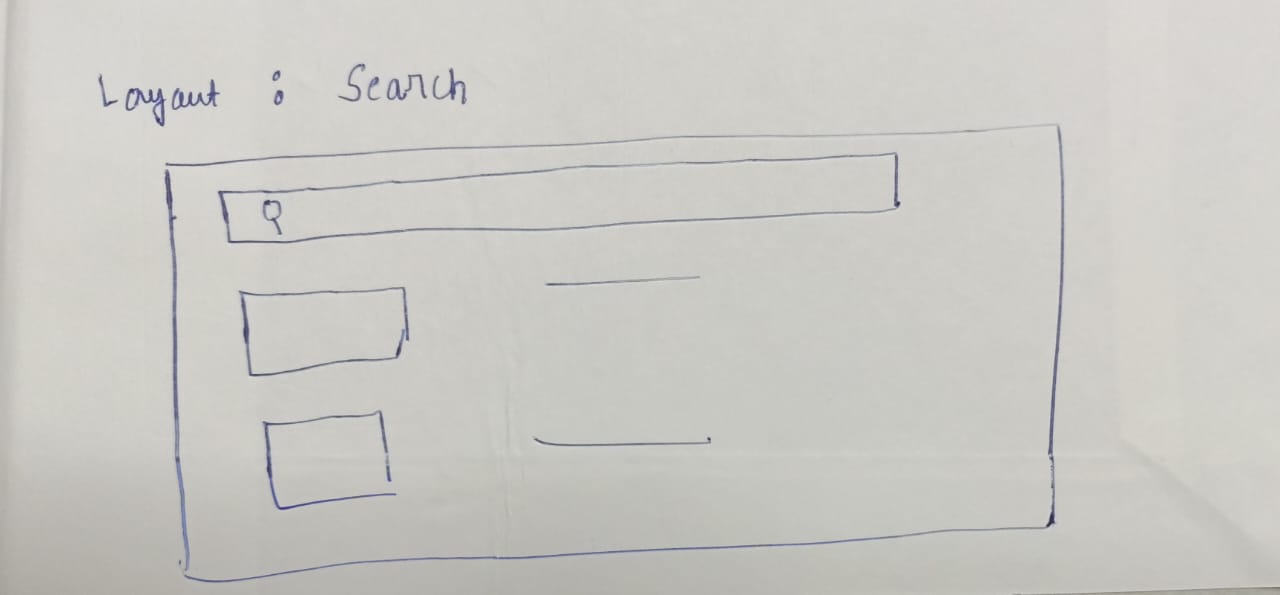 Layout : Search